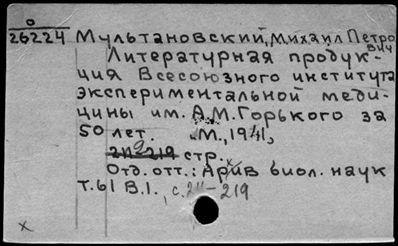 о
26224 Мультановский, Михаил Петрович
Литературная продук-
ция Всесоюзного института
экспериментальной меди-
цины им. А.М.Горького за
50 лет. М., 1941,
211-219 стр.
Отд. отт.: Архив биол. наук
т.61 В.1., с. 211-219
x